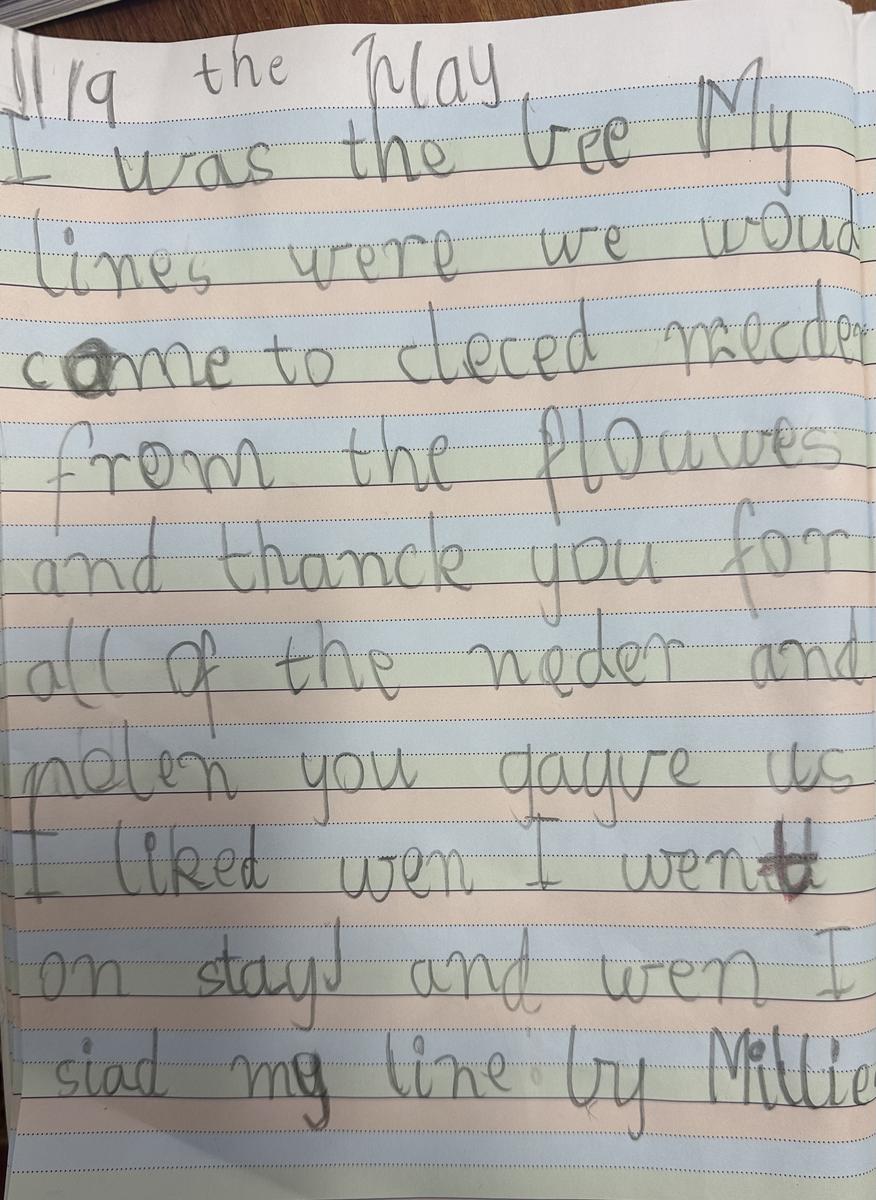 11/19 the Play
I was the bee My
lines were we woud
come to cleced necder
from the flouwes
and thanck you for
all of the neder and
polen you gayve us
I liked wen I went
on stayj and wen I
siad my line by Millie